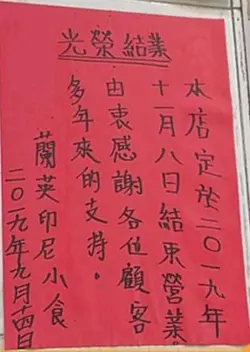 光榮結業
本店定於二〇一九年
十一月八日結束營業
由衷感謝各位顧客
多年來的支持。
蘭英印尼小食
二〇一九年九月十四日